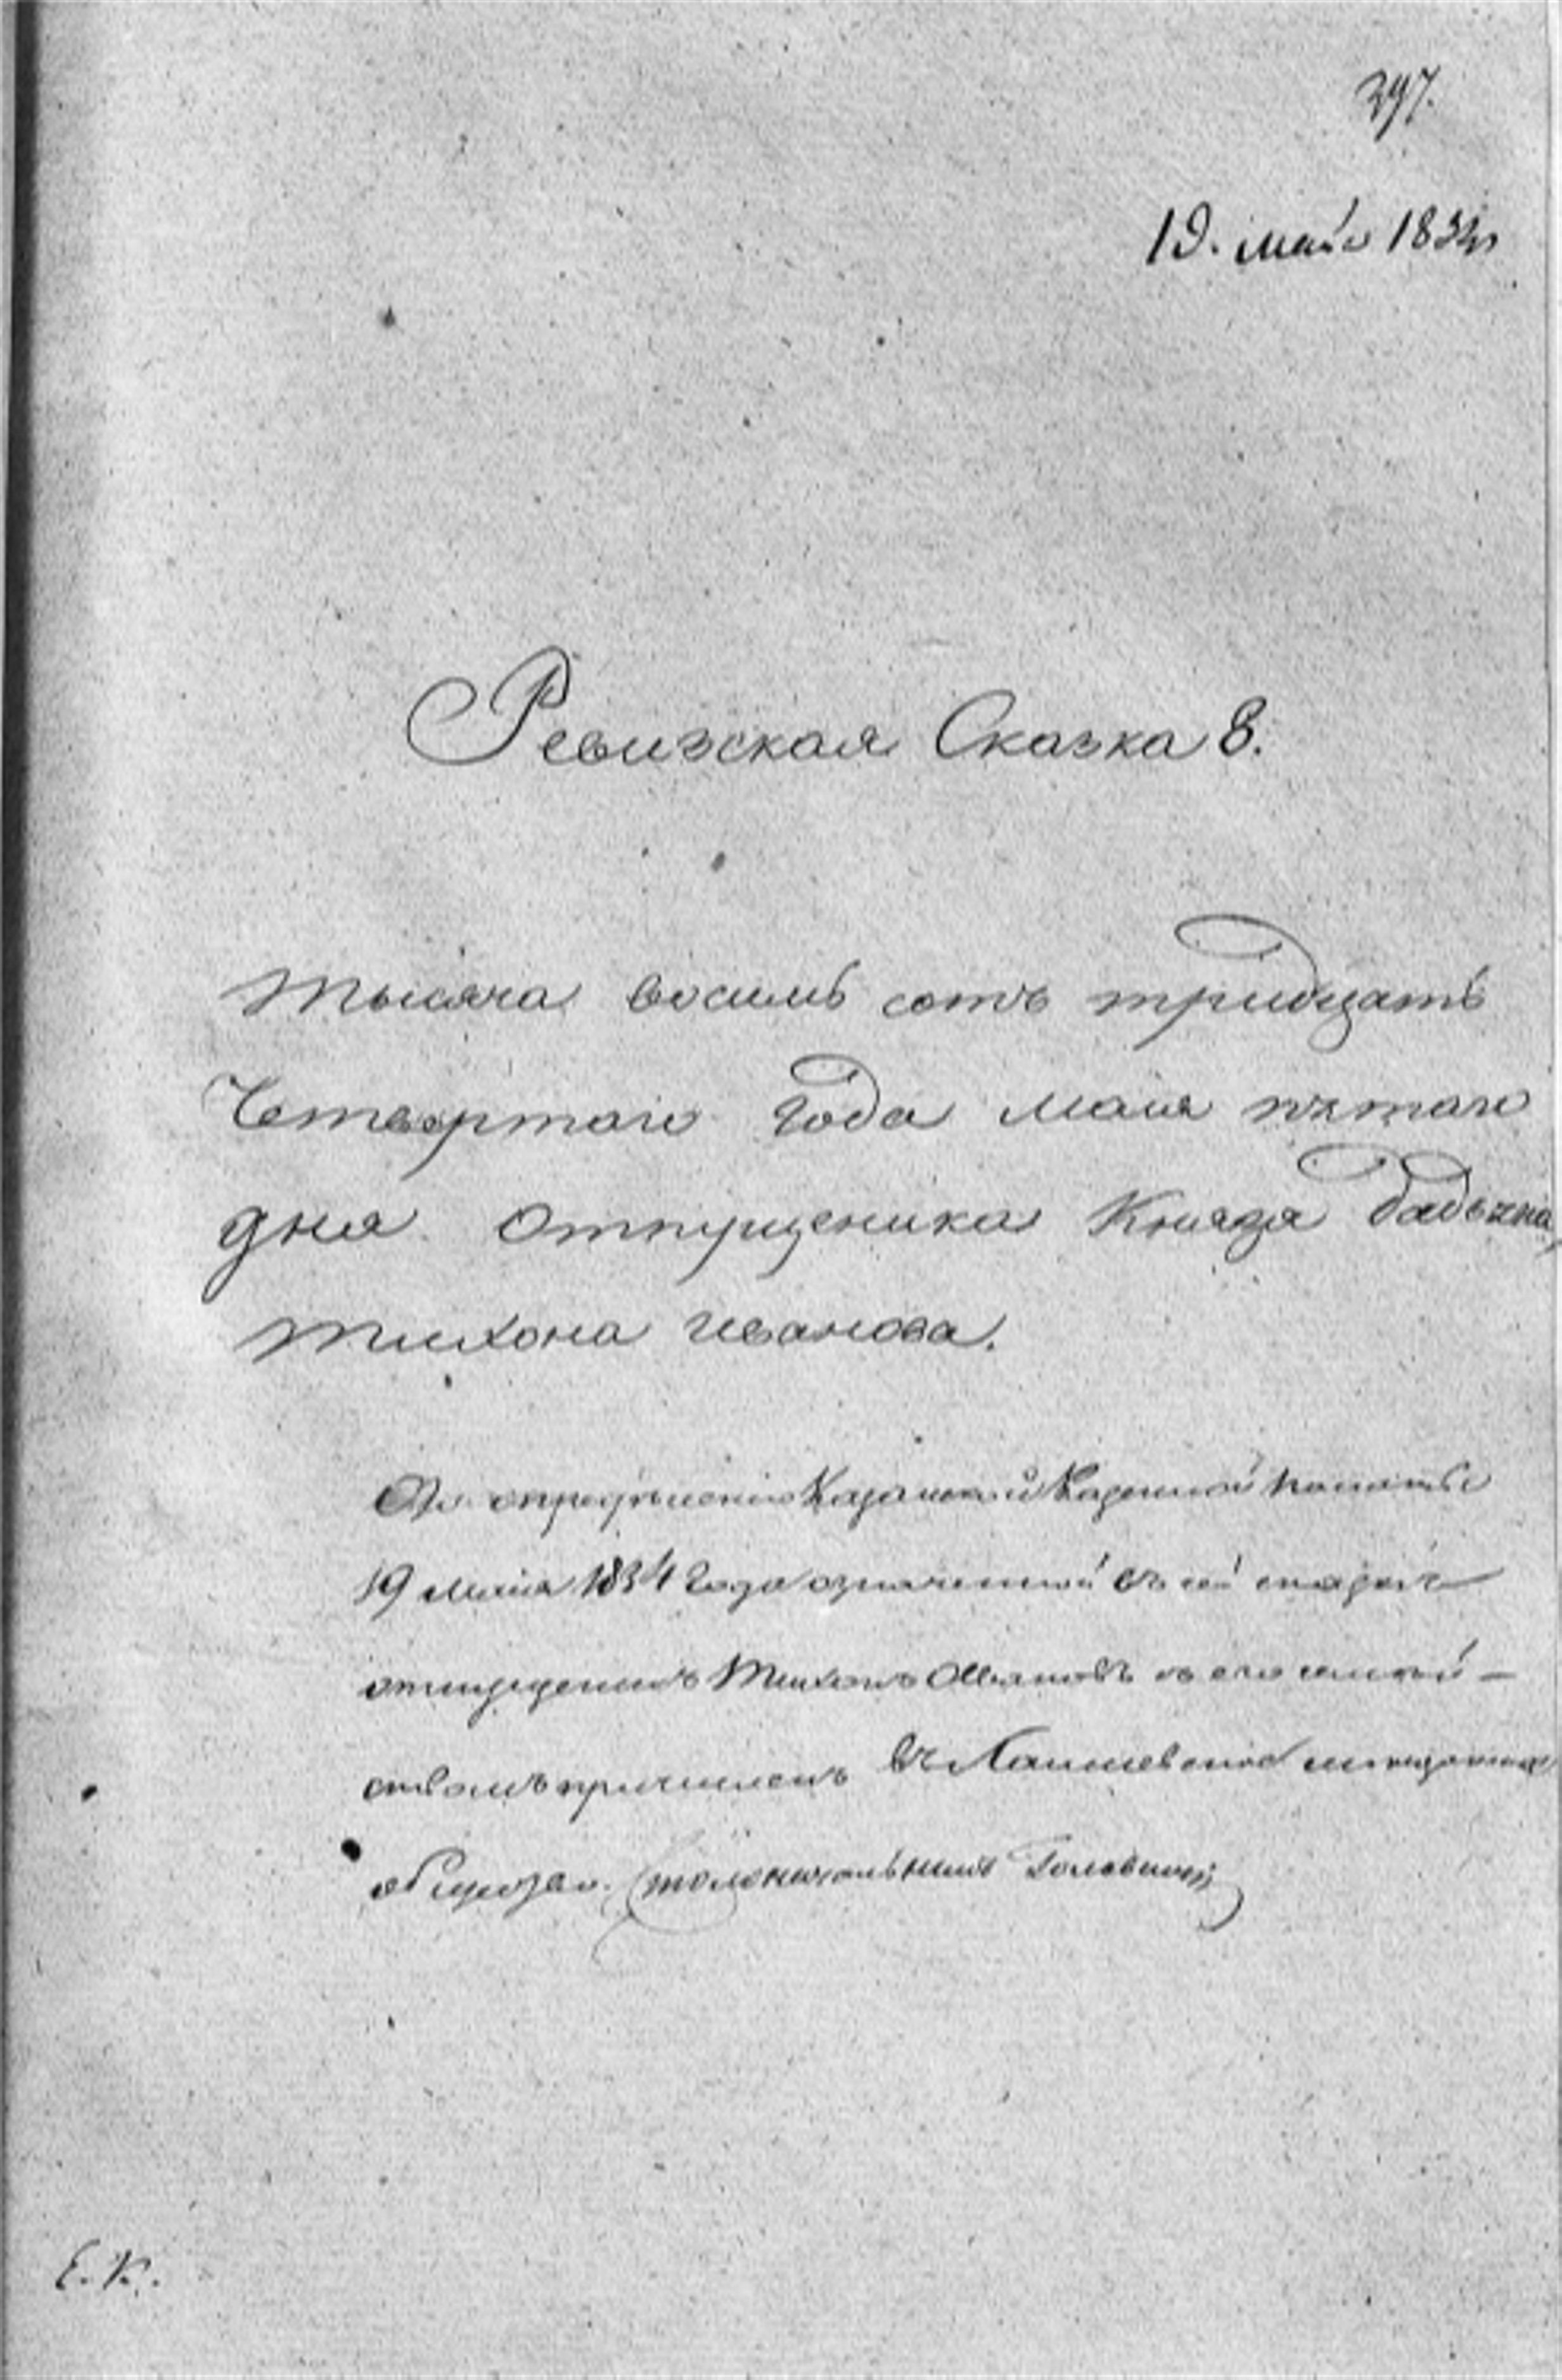 397.
19. майя 1834
Ревизская Сказка 8.
тысяча восимь сотъ тридцать
Четвертаго года маия пятаго
дня отпущеника Князя
тихона иванова.
По определению Казанской Казенной палаты
19 маия 1834 года означенной въ сей сказке
отпущенникъ Тихонъ Ивановъ съ его семей-
ствомъ причисленъ въ Лаишевское мещанское
общество. Столоначальникъ
Е. К.